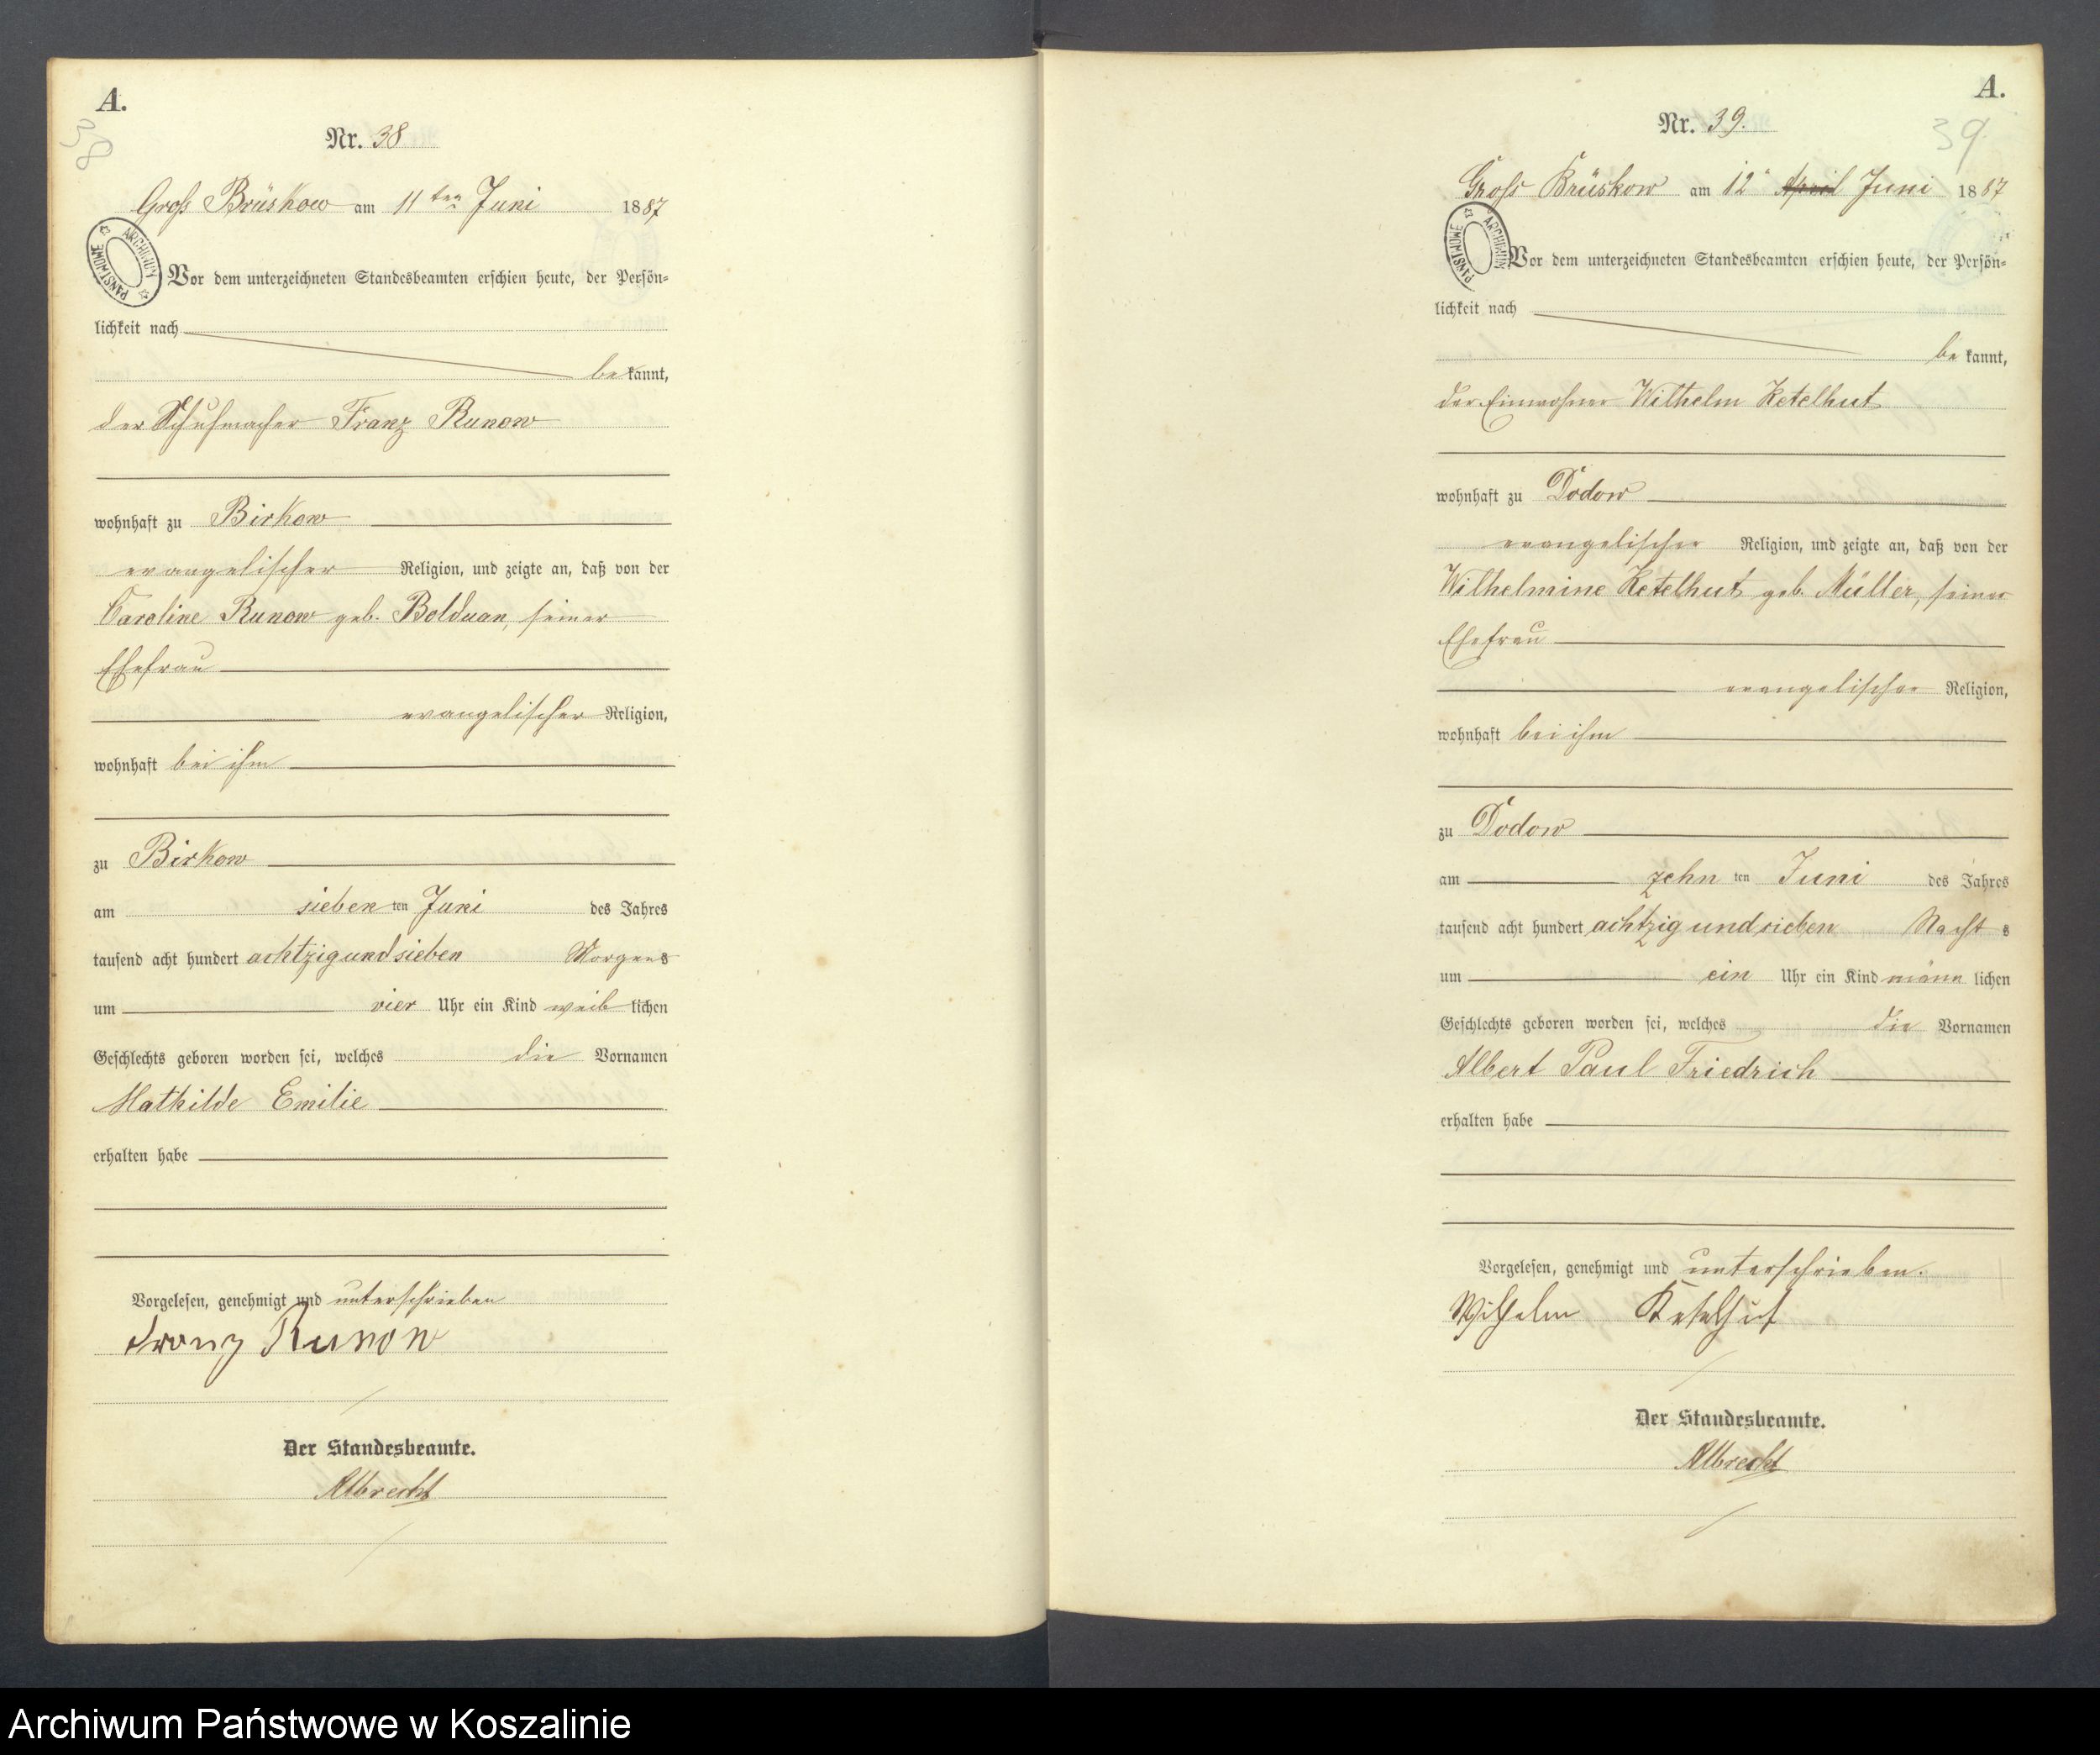 A.
38
Nr. 38
Groß Brüskow am 11ten Juni 1887
ARCHIWUM PAŃSTWOWE
Vor dem unterzeichneten Standesbeamten erschien heute, der Persön-
lichkeit nach
be kannt,
der Schuhmacher Franz Runow
wohnhaft zu Birkow
evangelischer Religion, und zeigte an, daß von der
Caroline Runow geb. Bolduan, seiner
Ehefrau
evangelischer Religion,
wohnhaft bei ihm
zu Birkow
am sieben ten Juni des Jahres
tausend acht hundert achtzig und sieben Morgens
um vier Uhr ein Kind weib lichen
Geschlechts geboren worden sei, welches die Vornamen
Mathilde Emilie
erhalten habe
Vorgelesen, genehmigt und unterschrieben
Franz Runow
Der Standesbeamte.
Albrecht
A.
39
Nr. 39.
Groß Brüskow am 12 April Juni 1887
ARCHIWUM PAŃSTWOWE
Vor dem unterzeichneten Standesbeamten erschien heute, der Persön-
lichkeit nach
be kannt,
der Einwohner Wilhelm Ketelhut
wohnhaft zu Dodow
evangelischer Religion, und zeigte an, daß von der
Wilhelmine Ketelhut geb. Müller, seiner
Ehefrau
evangelischer Religion,
wohnhaft bei ihm
zu Dodow
am zehn ten Juni des Jahres
tausend acht hundert achtzig und sieben Nacht s
um ein Uhr ein Kind männ lichen
Geschlechts geboren worden sei, welches die Vornamen
Albert Paul Friedrich
erhalten habe
Vorgelesen, genehmigt und unterschrieben.
Wilhelm Ketelhut
Der Standesbeamte.
Albrecht
Archiwum Państwowe w Koszalinie